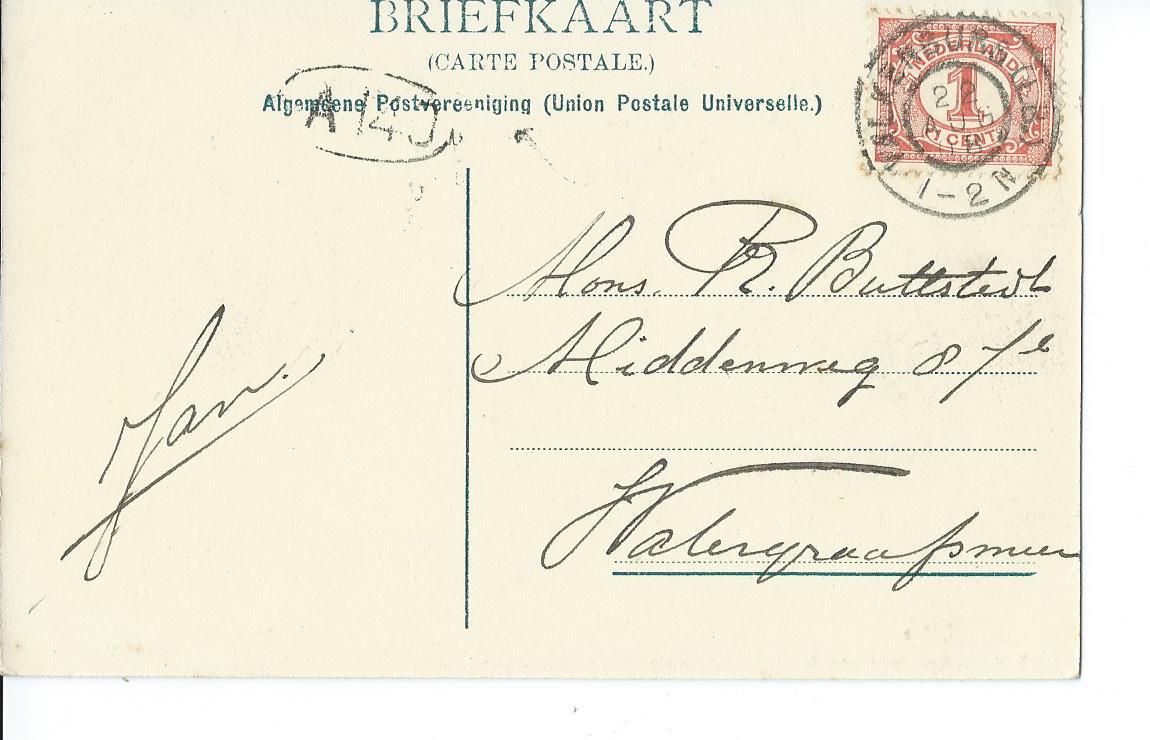 BRIEFKAART
(CARTE POSTALE.)
Algemeene Postvereeniging (Union Postale Universelle.)
A 14
NEDERLAND
1
1 CENT
1-2 N
Mons. R. Buttstedt
Middenweg 87
Watergraafsmeer
Jan.